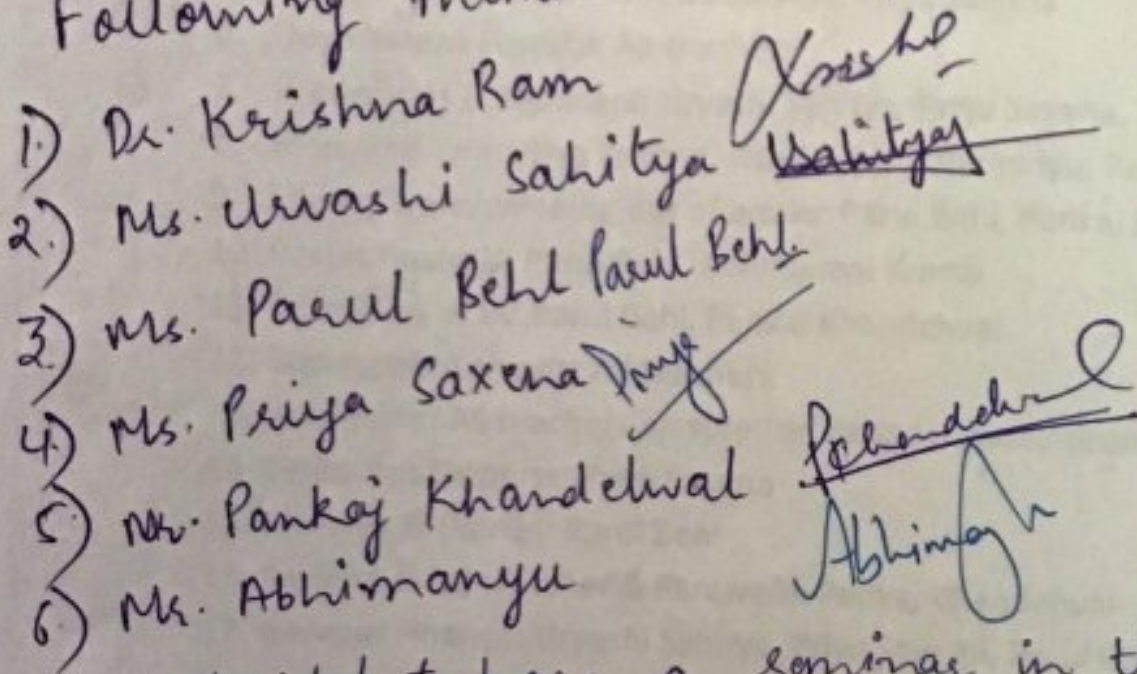 Following
1) Dr. Krishna Ram
2.) Ms. Urvashi Sahitya Usahityaj
3.) Ms. Parul Behl Parul Behl
4.) Ms. Priya Saxena Priya
5.) Mr. Pankaj Khandelwal Pkhandelwal
6) Mr. Abhimanyu
a seminar in